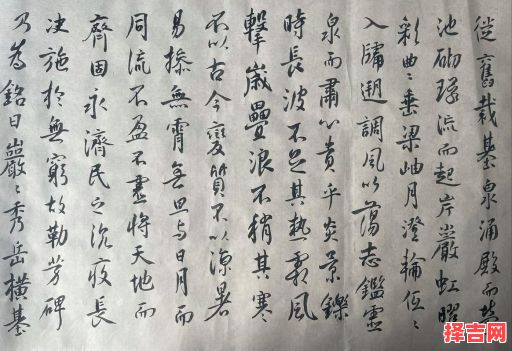 徙舊裁基泉涌殿而縈
池砌環流而起岸巖虹曜
彩曲〻垂梁岫月澄輪低〻
入牖遡調風以蕩志鑑靈
泉而肅心貴乎炎景鑠
時長波不足其熱霜風
擊歲疊浪不稍其寒
不以古今變質不以涼暑
易操無霄無旦与日月而
同流不盈不虛將天地而
齊固永濟民之沉疾長
决施於無窮故勒芳碑
乃為銘曰巖〻秀岳橫基
择吉网